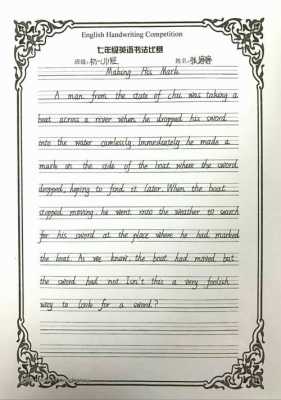 English Handwriting Competition
七年级英语书法比赛
班级: 初一(1)班 姓名:
Making His Mark
A man from the state of chu was taking a
boat across a river when he dropped his sword
into the water carelessly. Immediately he made a
mark on the side of the boat where the sword
dropped, hoping to find it later. When the boat
stopped moving, he went into the weather to search
for his sword at the place where he had marked
the boat. As we know, the boat had moved but
the sword had not. Isn't this a very foolish
way to look for a sword?